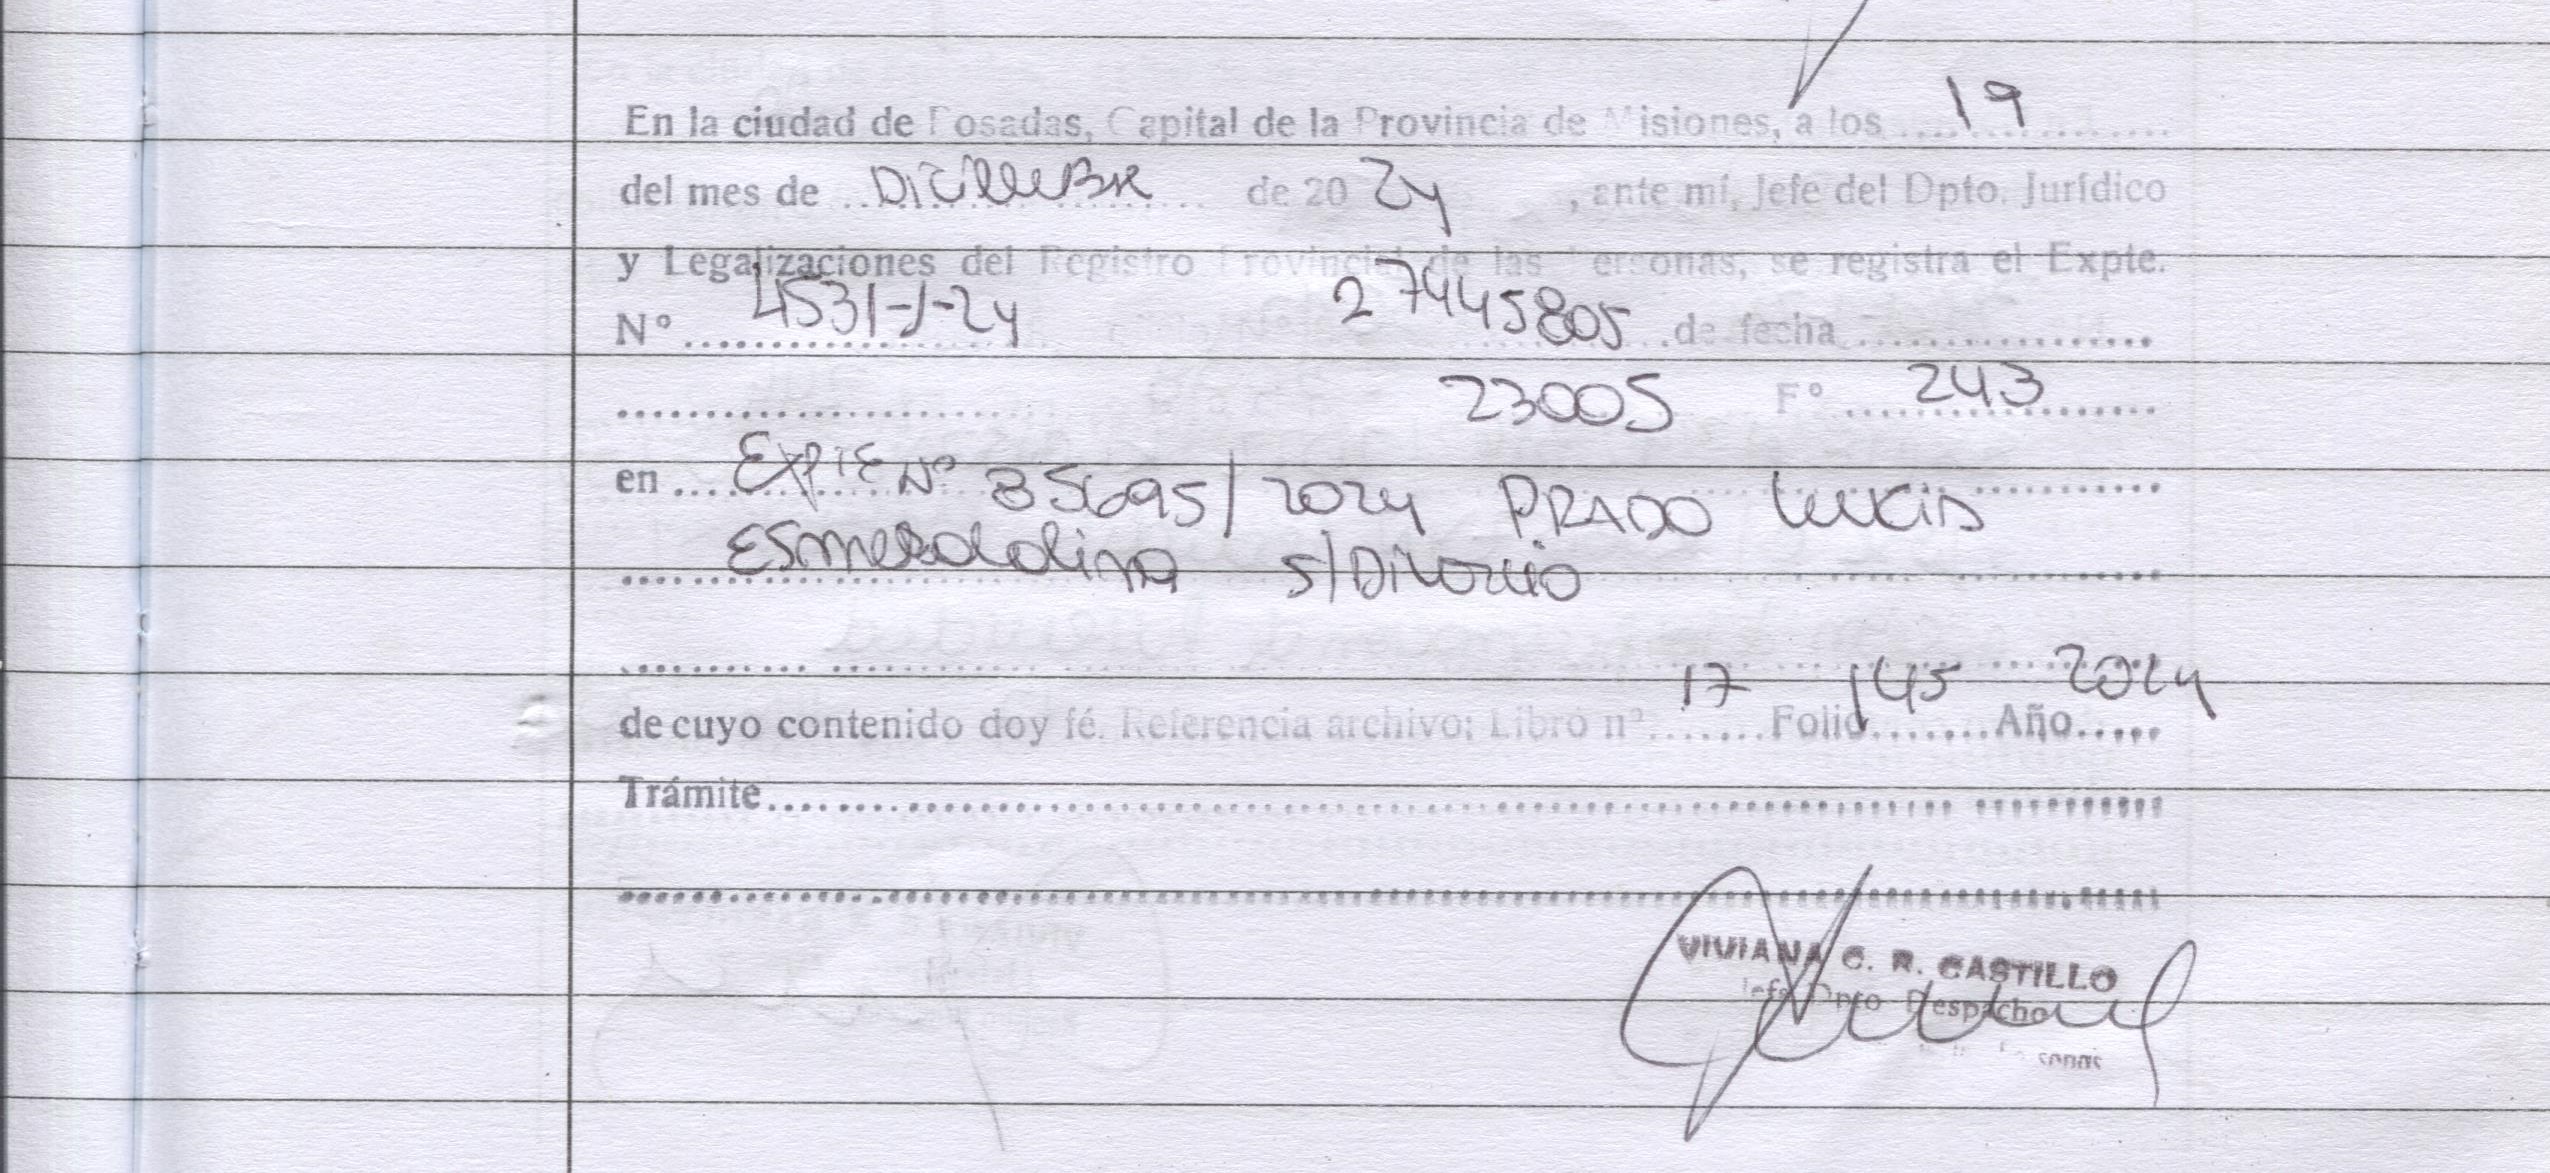 En la ciudad de Posadas, Capital de la Provincia de Misiones, a los 19
del mes de Diciembre de 2024, ante mí, Jefe del Dpto. Jurídico
y Legalizaciones del Registro Provincial de las Personas, se registra el Expte.
Nº 4531-J-24 27445805 de fecha
23005 Fº 243
en Expte Nº 85695/2024 PRADO Lucia
Esmeraldina s/Divorcio
de cuyo contenido doy fé. Referencia archivo; Libro nº 17 Folio 145 Año 2024
Trámite
VIVIANA C. R. CASTILLO
Jefe Dpto Despacho